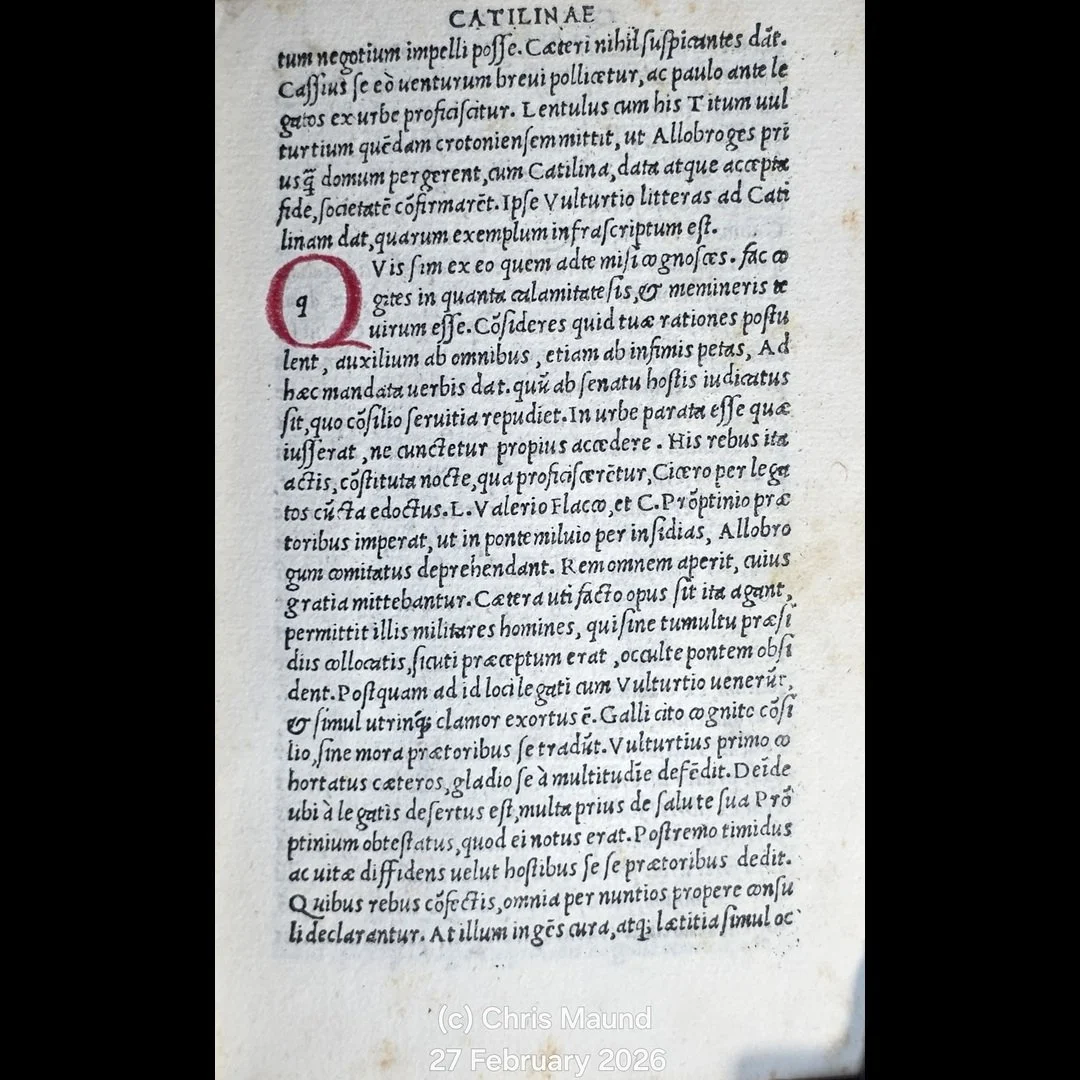 CATILINAE
tum negotium impelli posse. Cæteri nihil suspicantes dāt.
Cassius se eò uenturum breui pollicetur, ac paulo ante le
gatos ex urbe proficiscitur. Lentulus cum his Titum uul
turtium quēdam crotoniensem mittit, ut Allobroges pri
usq̃ domum pergerent, cum Catilina, data atque accepta
fide, societatē cōfirmarēt. Ipse Vulturtio litteras ad Cati
linam dat, quarum exemplum infrascriptum est.
QVis sim ex eo quem ad te misi cognosces. fac co
q gites in quanta calamitate sis, & memineris te
uirum esse. Cōsideres quid tuæ rationes postu
lent, auxilium ab omnibus, etiam ab infimis petas, Ad
hæc mandata uerbis dat. quū ab senatu hostis iudicatus
sit, quo cōsilio seruitia repudiet. In urbe parata esse quæ
iusserat, ne cunctetur propius accedere. His rebus ita
actis, cōstituta nocte, qua proficiscerētur, Cicero per lega
tos cūcta edoctus. L. Valerio Flacco, et C. Prōptinio præ
toribus imperat, ut in ponte miluio per insidias, Allobro
gum comitatus deprehendant. Rem omnem aperit, cuius
gratia mittebantur. Cætera uti facto opus sit ita agant,
permittit illis militares homines, qui sine tumultu præsi
diis collocatis, sicuti præceptum erat, occulte pontem obsi
dent. Postquam ad id loci legati cum Vulturtio uenerūt,
& simul utrinq; clamor exortus ē. Galli cito cognito cōsi
lio, sine mora prætoribus se tradūt. Vulturtius primo co
hortatus cæteros, gladio se à multitudīe defēdit. Deīde
ubi à legatis desertus est, multa prius de salute sua Prō
ptinium obtestatus, quod ei notus erat. Postremo timidus
ac uitæ diffidens uelut hostibus se se prætoribus dedit.
Quibus rebus cōfectis, omnia per nuntios propere consu
li declarantur. At illum ingēs cura, atq; lætitia simul oc
(c) Chris Maund
27 February 2026